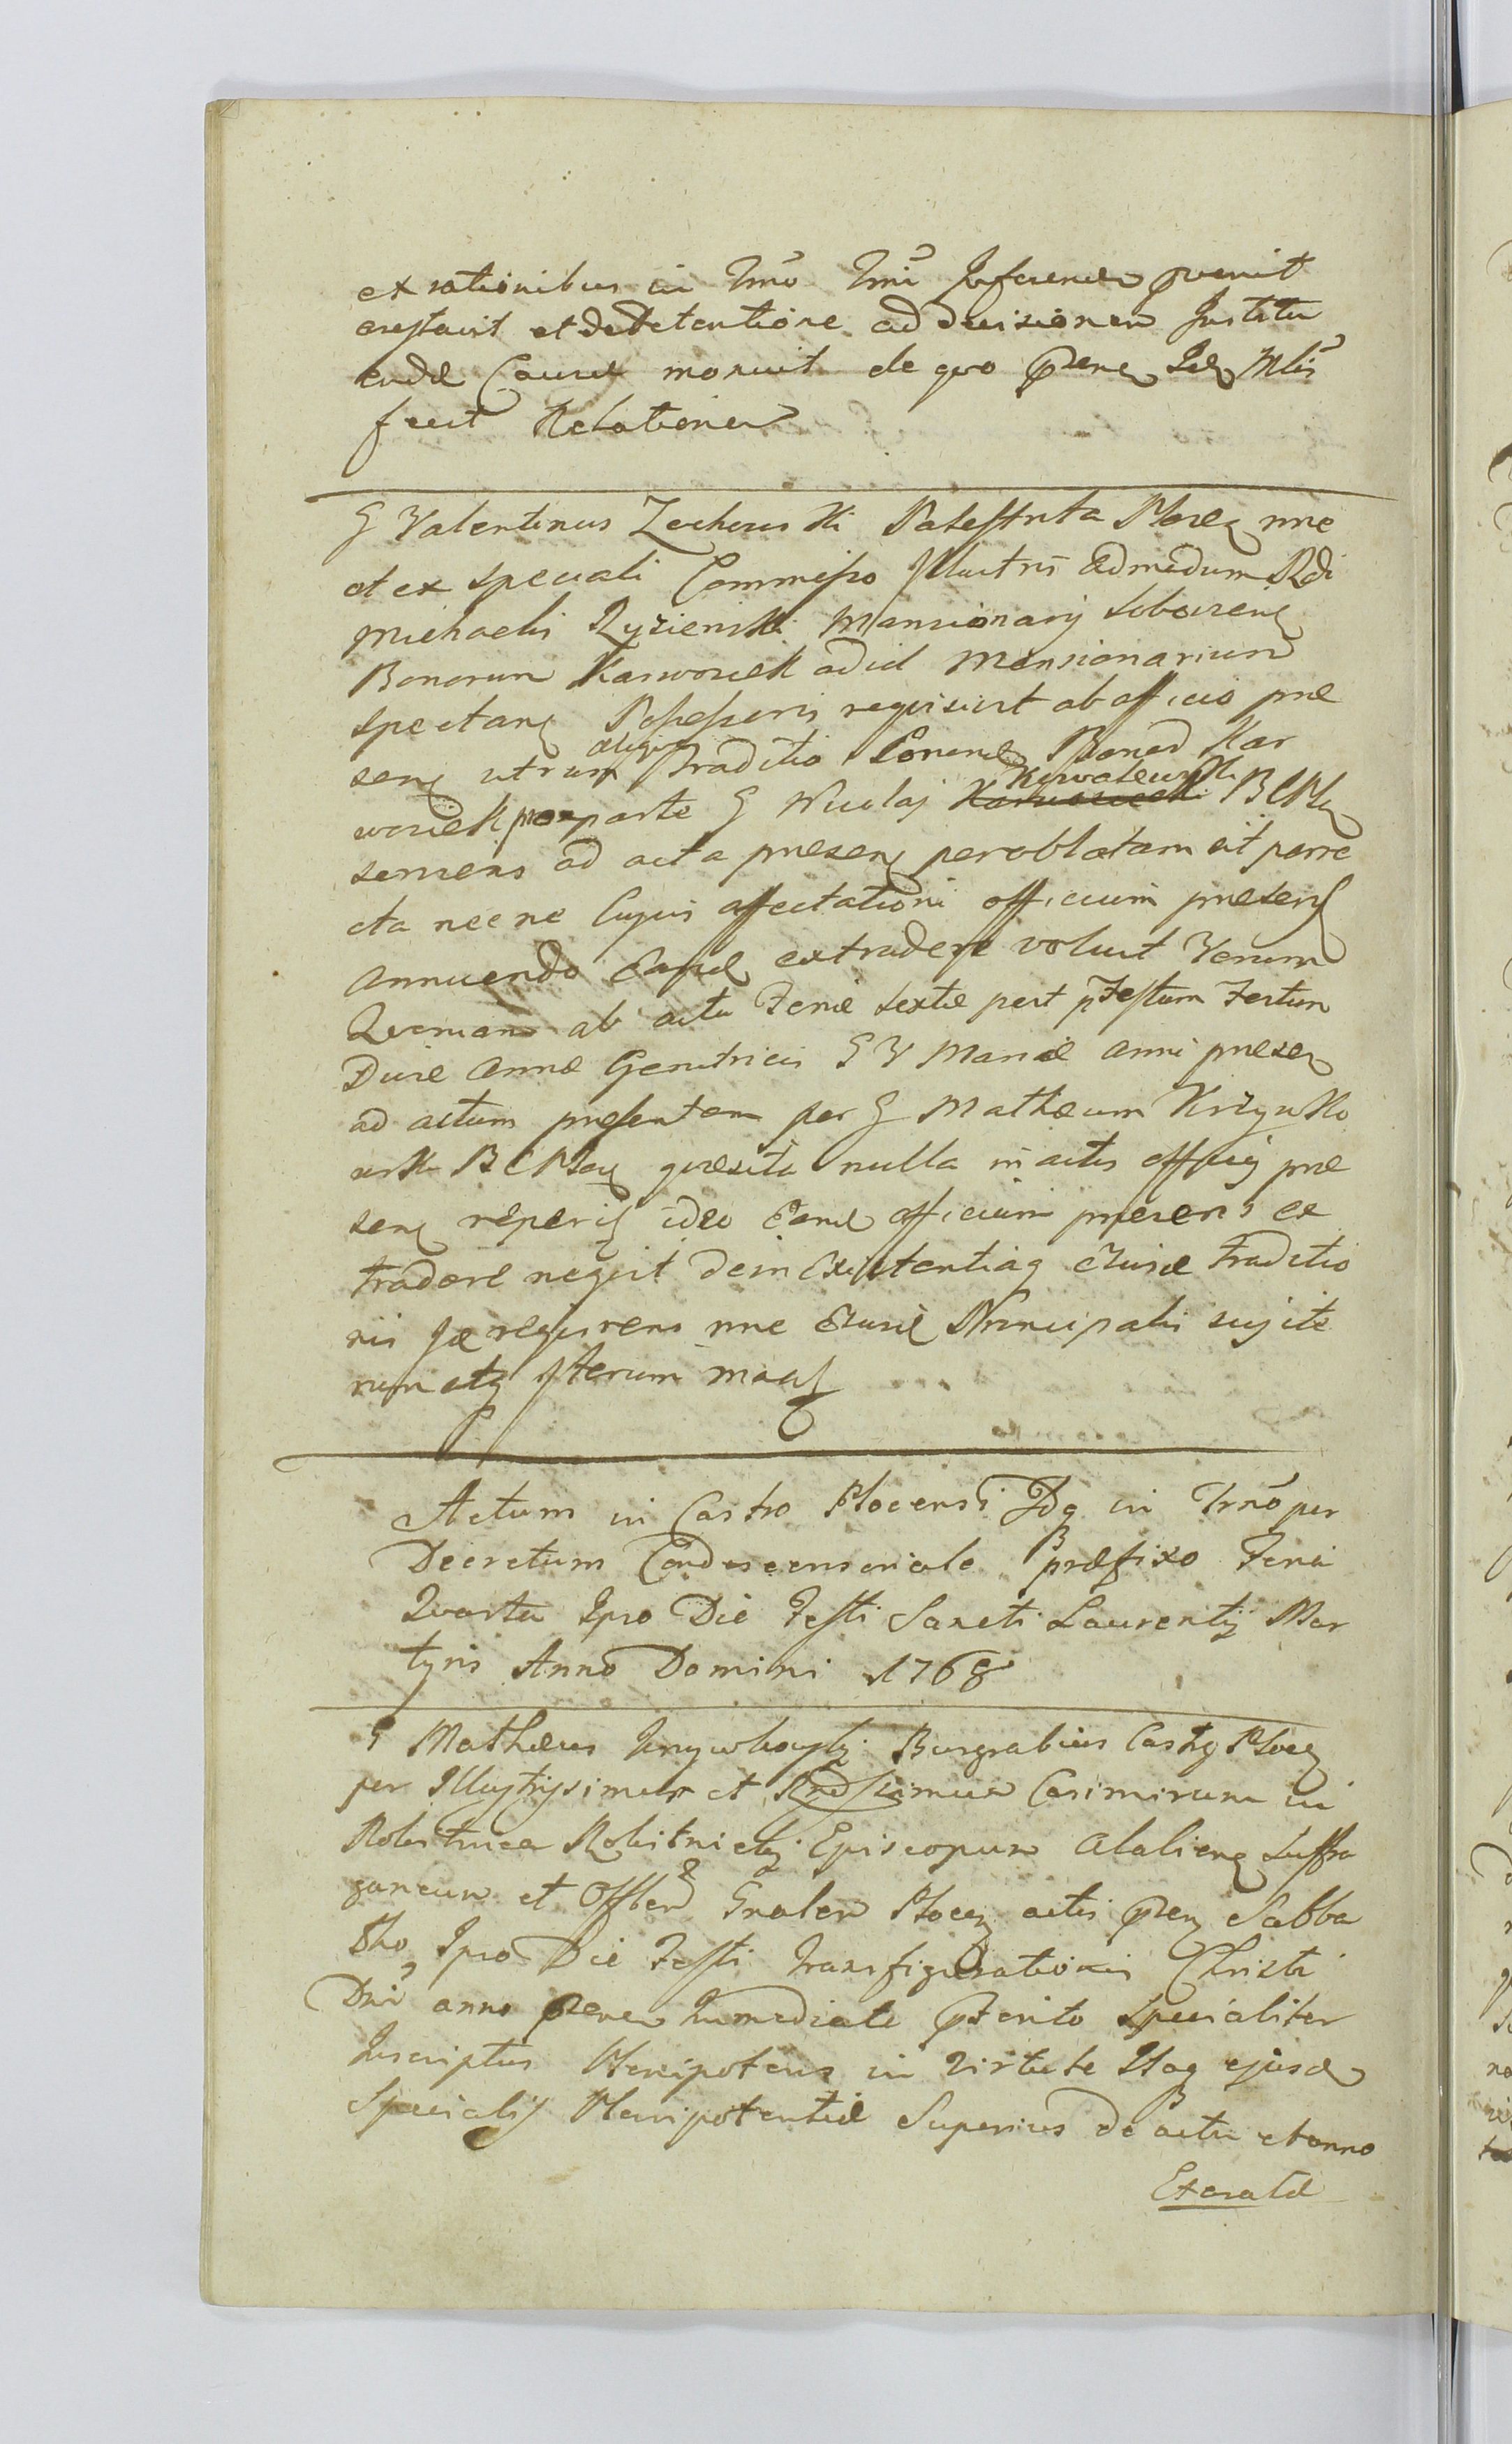 ex rationibus in Trno Trni Inferend pvenit
arestavit et de detentione ad decisionem Institu
endæ Causæ monuit de quo Præns Idq Mlis
fecit Relationem
G Valentinus Zochowski Palestrita Plocen nne
et ex speciali Commisso Illustris Admodum Rdi
Michaelis Ryzienski Mansionarij
Bonorum Karwosiek ad id Mansionarium
spectan Possessoris requisivit ab officio præ
sen utrum aliqua Traditio Bonor Kar
wosiek pro parte G Nicolaj Karwosiecki Kowalewski B C Plo
serviens ad acta præsen per oblatam sit porre
cta nec ne Cujus affectationi officium præsens
annuendo Eand extradere voluit Verum
Quoniam ab actu Feriæ sextæ post Festum Festum
Divæ Annæ Genitricis B V Mariæ anni præsen
ad actum præsentem per G Mathæum Krzywko
wski B C Plocen quæsita nulla in actis officij præ
sen reperit ideo Eand officium præsens ex
tradere neqvit dein Existentiaq Ejusd Traditio
nis Idem requirens nne Ejusd Principalis sui ite
rum atq Iterum mant
Actum in Castro Plocensi Idq in Trno per
Decretum Condescensoriale præfixo Feria
Quarta Ipso Die Festi Sancti Laurentij Mar
tyris Anno Domini 1768
G Mathæus Krzywkowski Burgrabius Castr Plocen
per Illustrissimum et Rndssimum Casimirum in
Rokitnica Rokitnicki Episcopum Alalien Suffra
ganeum et Offlem Gnalem Plocen actis Præn Sabba
tho Ipso Die Festi Transfigurationis Christi
Dni anno Præn Immediate Pterito specialiter
Inscriptus Plenipotens in virtute Itaq ejusd
Specialis Plenipotentiæ Superius de actu et anno
Exaratæ